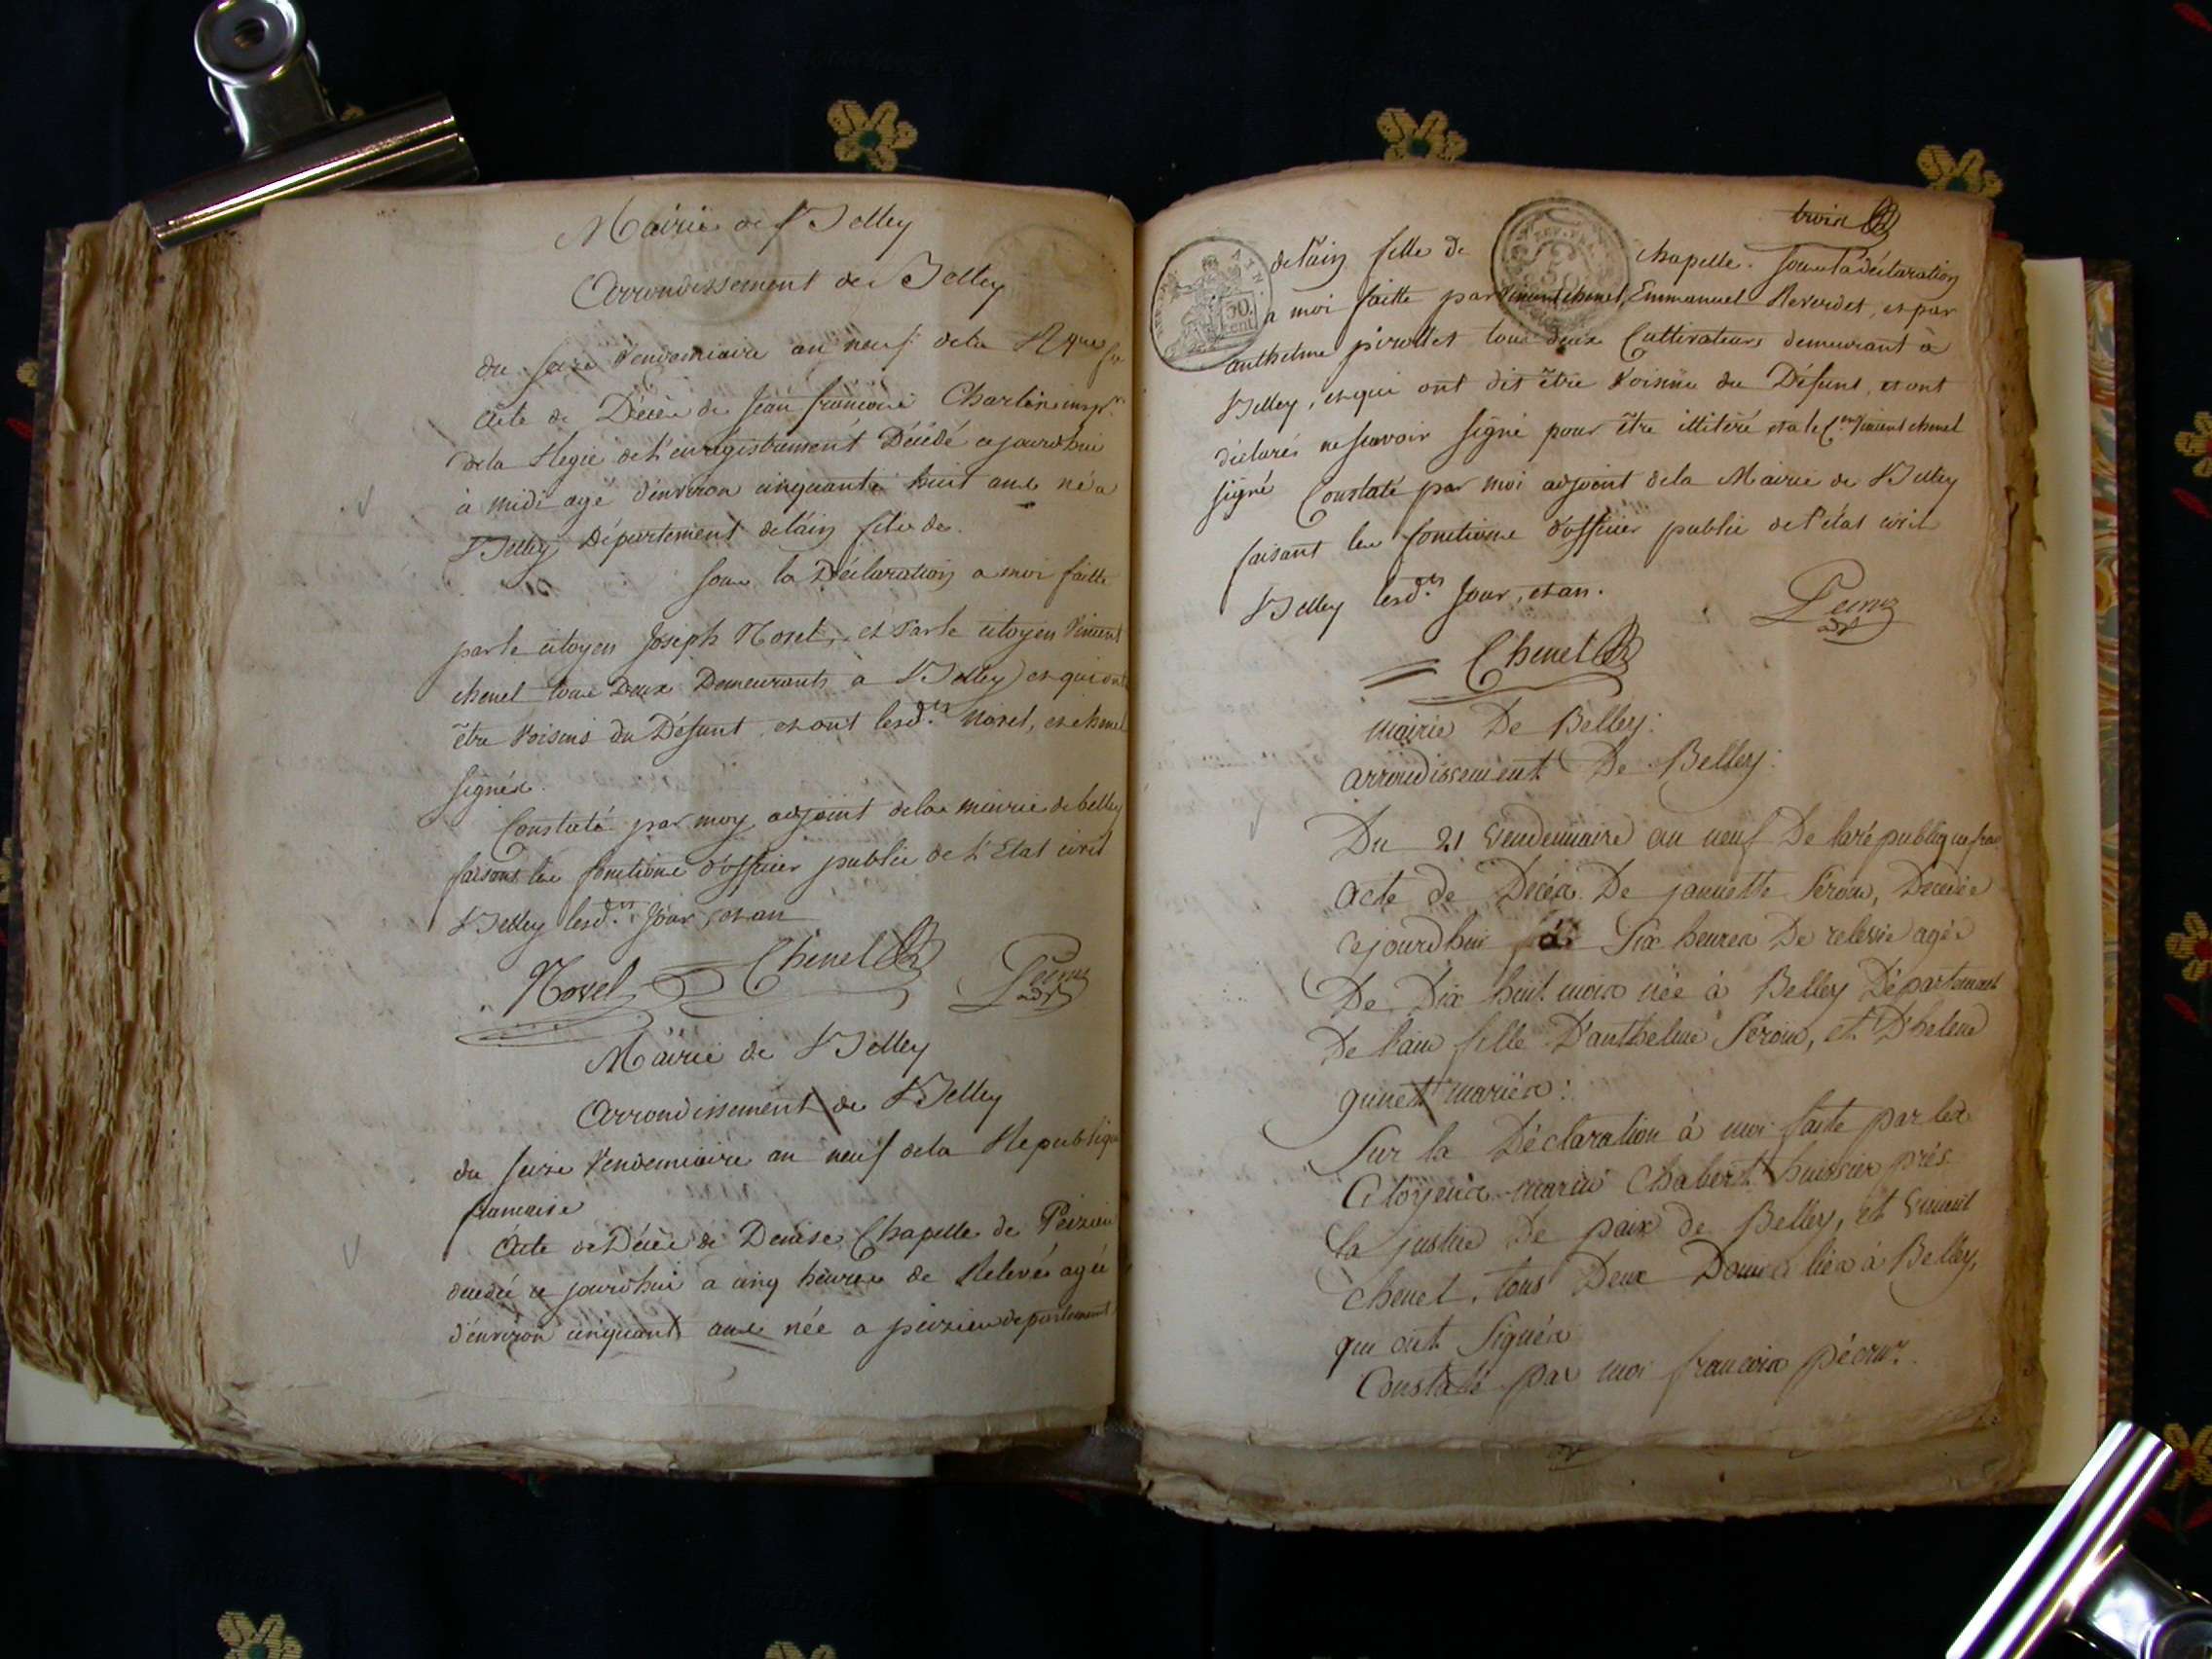 Mairie de Belley
Arrondissement de Belley
du seize Vendemiaire an neuf dela Rque
Acte de Décès de Jean françois Charlin
dela Regie de l'enregistrement Décédé cejourdhui
à midi agé d'environ cinquante huit ans né a
Belley Département delain fils de
sous la Déclaration a moi faitte
par le citoyen Joseph Novel, et Parle citoyen Vincent
chenel tous Deux Demeurants a Belley et qui ont
être Voisins du Défunt, et ont lesd.ts Novel, et chenel
signés.
Constaté par moy adjoint dela mairie de belley
faisant les fonctions d'officier public de l'Etat civil
Belley lesd.ts Jour et an
Novel Chenel
Mairie de Belley
Arrondissement de Belley
du seize Vendemiaire an neuf dela Republique
francaise
Acte de Décès de Denise Chapelle de Peizieu
decedée ce jourdhui a cinq heures de Relevée agée
d'environ cinquante ans née a peizieu departement
trois
50. cent
delain fille de chapelle. sous la déclaration
a moi faitte par Vincent chenel, Emmanuel Reverdet, et par
anthelme pirollet tous deux Cultivateurs demeurant à
Belley, et qui ont dit être Voisins du Défunt, et ont
déclarés ne scavoir signé pour être illiteré et a le C.en Vincent chenel
signé Constaté par moi adjoint dela Mairie de Belley
faisant les fonctions d'officier public de l'état civil
Belley lesd.ts Jour, et an.
Chenel
mairie De Belley:
arrondissement De Belley:
Du 21 Vendemiaire an neuf De la république fra
acte de Décès De jannette Peroin, Decedée
cejourdhui à Six heures De relevée agée
De Dix huit mois née à Belley Département
De l'ain fille D'anthelme Peroin, et D'helene
guinet mariés:
Sur la Déclaration à moi faite par les
Citoyens marin Chabert huissier près
la justice De paix de Belley, et Vincent
Chenel, tous Deux Domiciliés à Belley,
qui ont Signés
Constaté par moi francois pécour